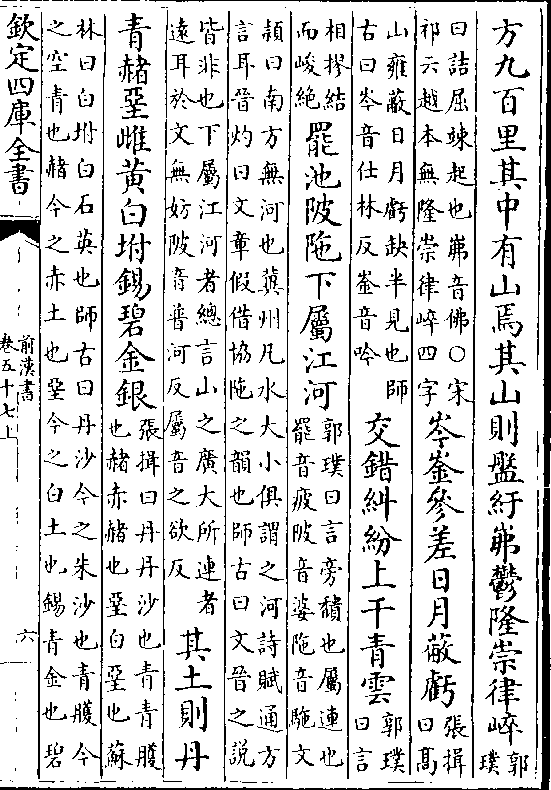 方九百里其中有山焉其山則盤紆岪鬱隆崇律崒郭璞
曰詰屈竦起也岪音佛○宋祁云越本無隆崇律崒四字岑崟參差日月蔽虧張揖曰髙
山雍蔽日月虧缺半見也師古曰岑音仕林反崟音吟交錯糾紛上干青雲郭璞曰言
相摎結而峻絶罷池陂陁下屬江河郭璞曰言旁穨也屬連也罷音疲陂音婆陁音駞文
頴曰南方無河也冀州凡水大小俱謂之河詩賦通方言耳晉灼曰文章假借協陁之韻也師古曰文晉之説
皆非也下屬江河者總言山之廣大所連者遠耳於文無妨陂音普河反屬音之欲反其土則丹
青赭堊雌黄白坿錫碧金銀張揖曰丹丹沙也青青雘也赭赤赭也堊白堊也蘇
林曰白坿白石英也師古曰丹沙今之朱沙也青雘今之空青也赭今之赤土也堊今之白土也錫青金也碧
欽定四庫全書
前漢書
卷五十七上
六